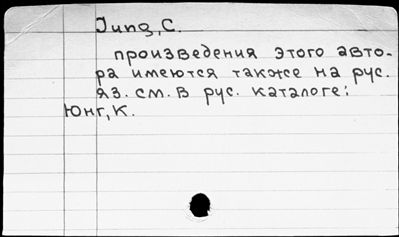 Jung, C.
произведения этого авто-
ра имеются также на рус.
яз. см. в рус. каталоге:
Юнг, К.